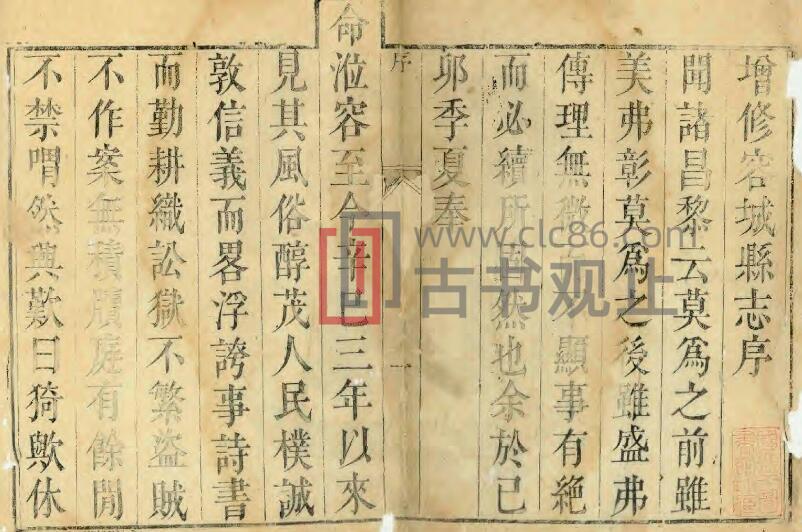 增修容城縣志序
聞諸昌黎云莫爲之前雖
美弗彰莫爲之後雖盛弗
傳理無微不顯事有絶
而必續所固然也余於已
卯季夏奉
序
一
命涖容至今辛巳三年以來
見其風俗醇茂人民樸誠
敦信義而畧浮誇事詩書
而勤耕織訟獄不繁盜賊
不作案無積牘庭有餘閒
不禁喟然興歎曰猗歟休
www.clc86.com
古书观止